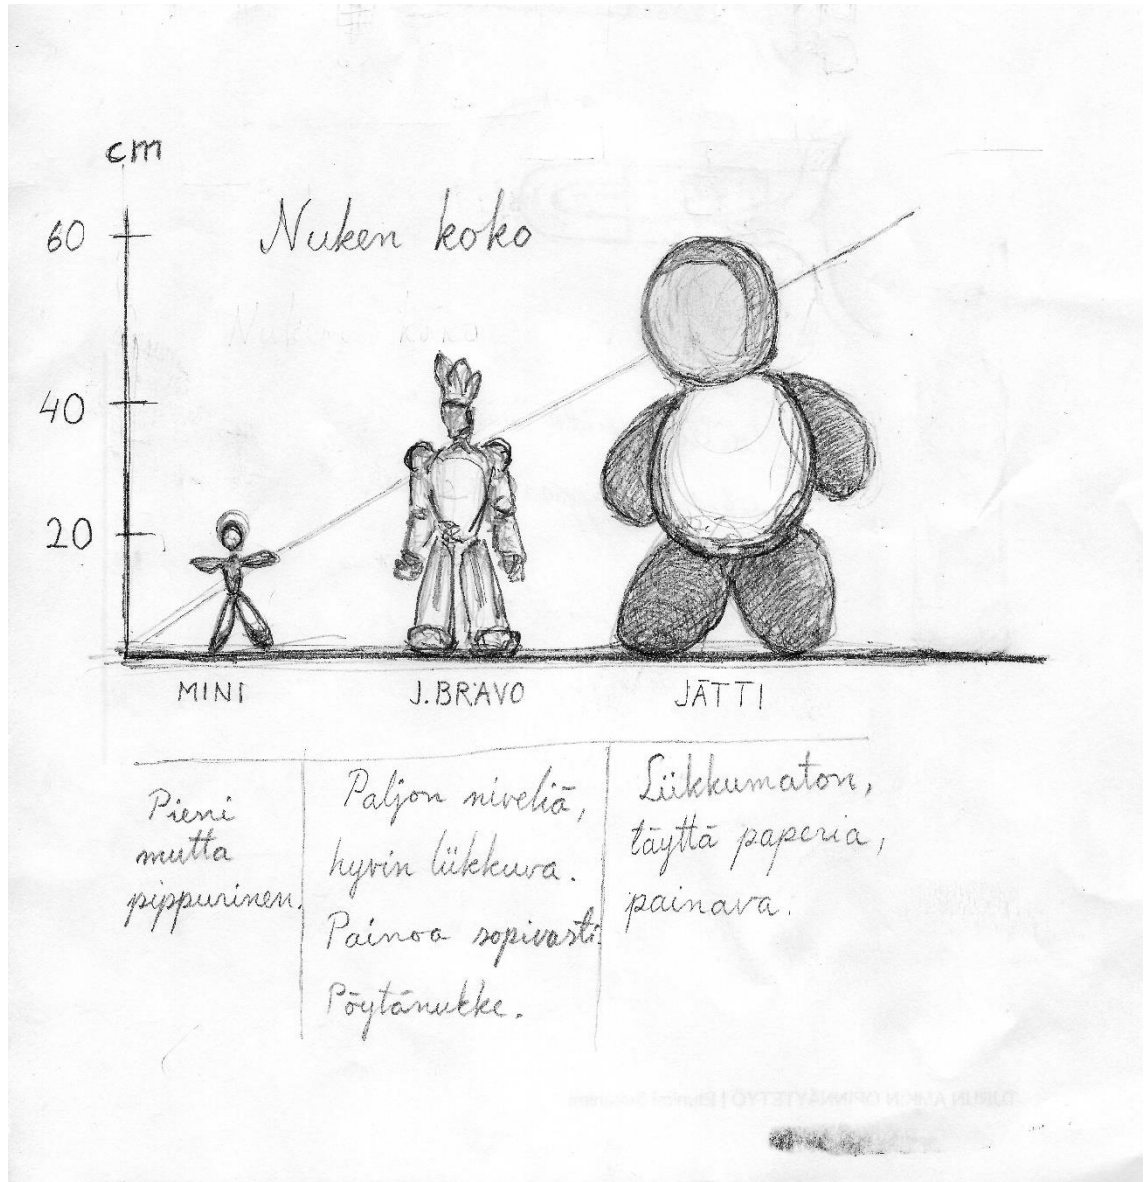 cm
Nuken koko
60
40
20
Nuken koko
MINI
J.BRAVO
JÄTTI
Pieni
mutta
pippurinen.
Paljon niveliä,
hyvin liikkuva.
Painoa sopivasti.
Pöytänukke.
Liikkumaton,
täyttä paperia,
painava.
TURUN AMK:N OPINNÄYTETYÖ |